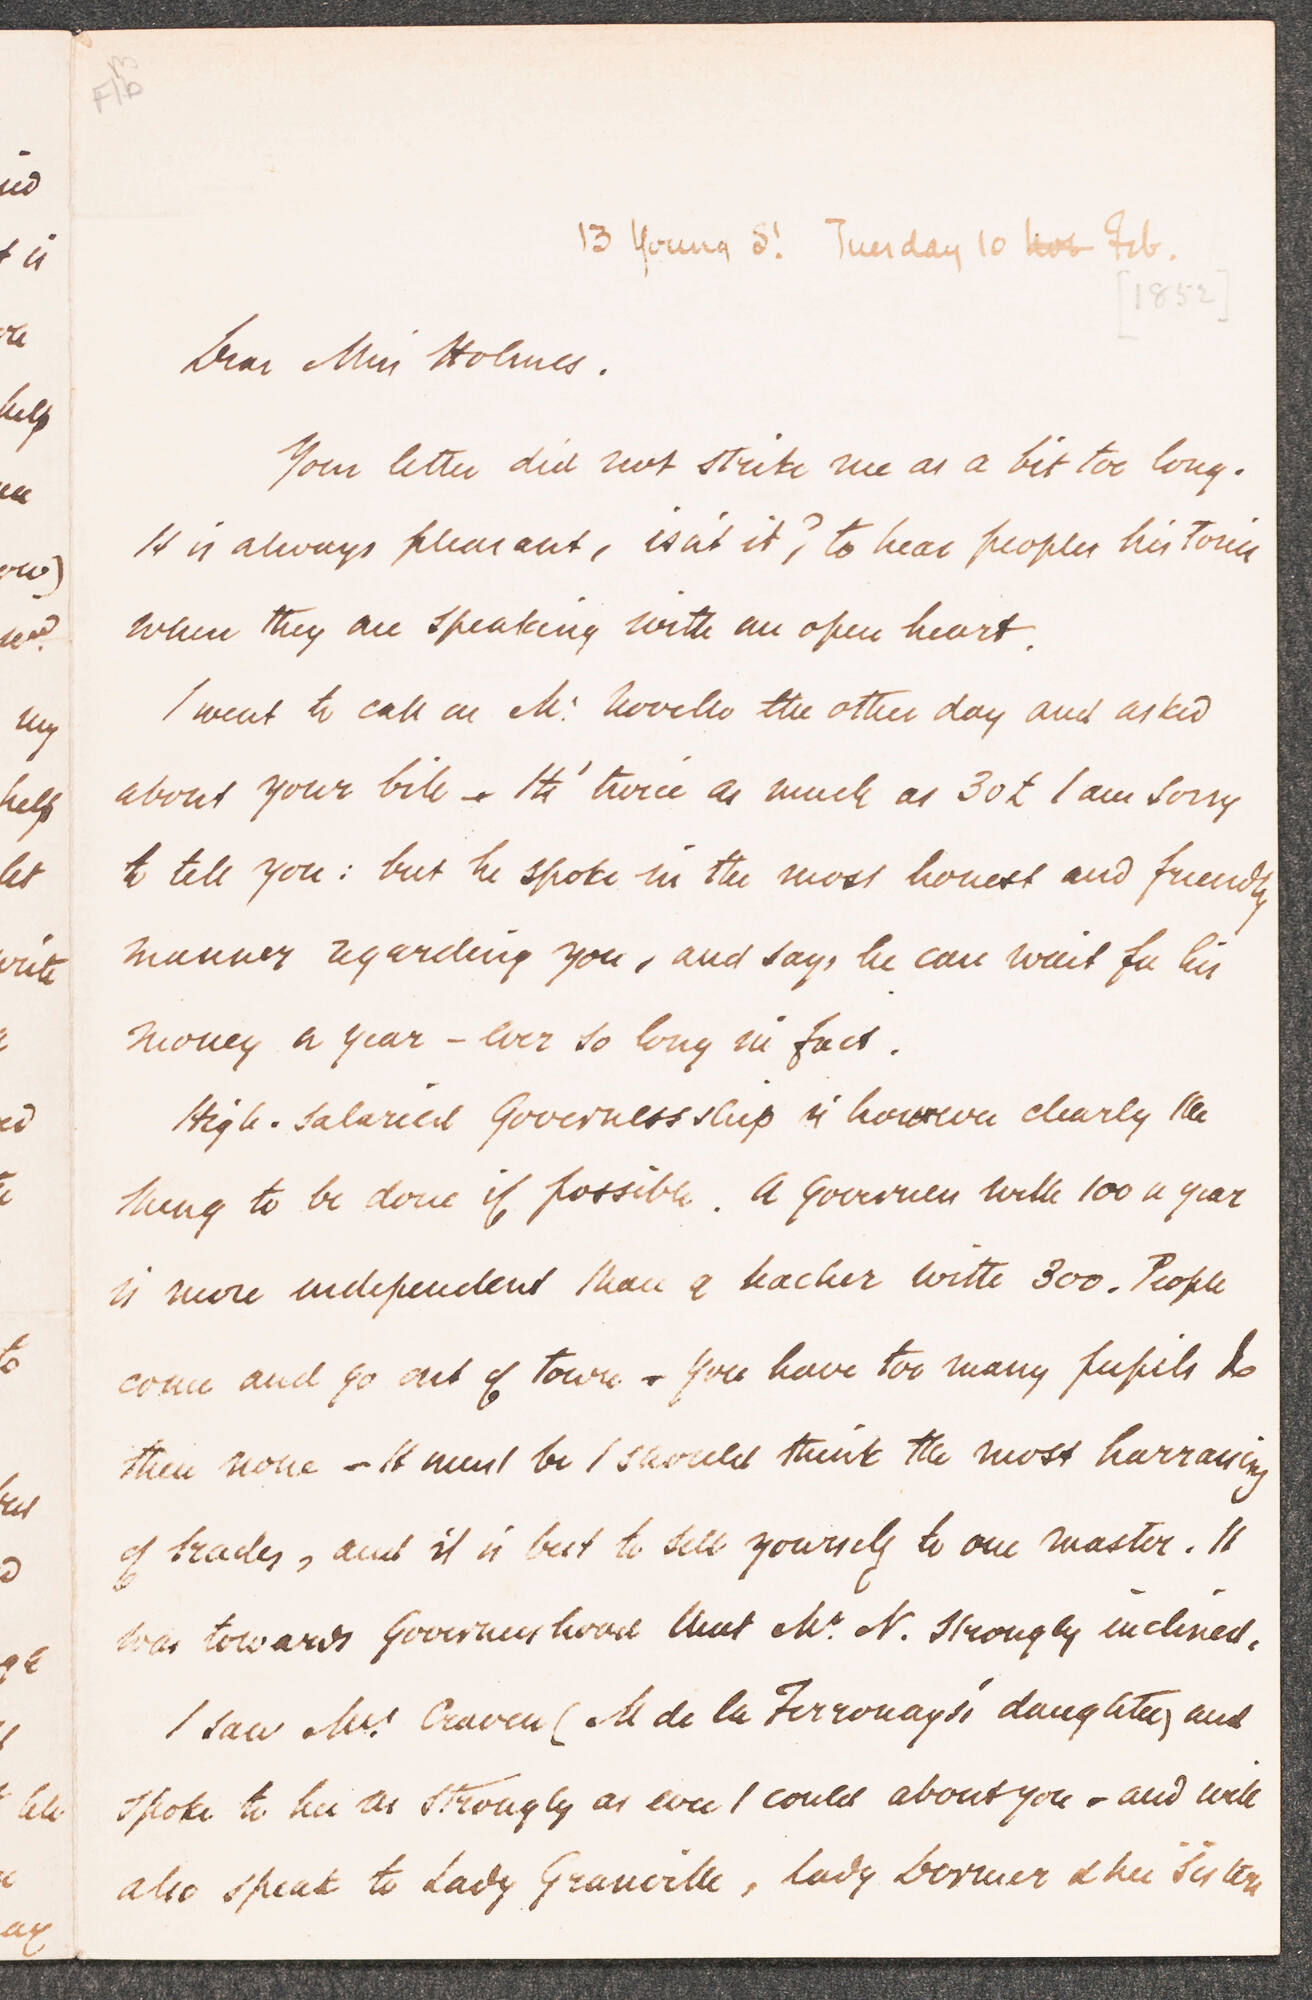 13 Young St. Tuesday 10 Nov Feb.
[1852]
Dear Miss Holmes.
Your letter did not strike me as a bit too long.
It is always pleasant, isn't it? to hear peoples histories
when they are speaking with an open heart.
I went to call on Mr. Novello the other day and asked
about your bill - Its' twice as much as 30£ I am sorry
to tell you: but he spoke in the most honest and friendly
manner regarding you, and says he can wait for his
money a year - ever so long in fact.
High-salaried Governessship is however clearly the
thing to be done if possible. A Governess with 100 a year
is more independent than a teacher with 300. People
come and go out of town - you have too many pupils &
then none - It must be I should think the most harrassing
of trades, and it is best to sell yourself to one master. It
was towards Governesshood that Mr. N. strongly inclined.
I saw Mrs. Craven (M de la Ferronays' daughter) and
spoke to her as strongly as ever I could about you - and will
also speak to Lady Granville, Lady Dormer & her sisters